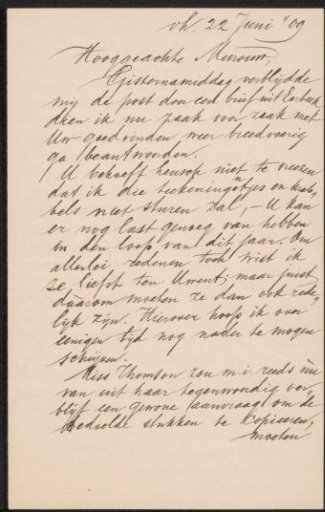 vh. 22 Juni '09
Hooggeachte Mevrouw,
Gisternamiddag verblydde
my de post door een brief uit
dien ik nu zaak voor zaak met
Uw goedvinden weer breedvoerig
ga beantwoorden.
U behoeft heusch niet te vreezen
dat ik die teekeningetjes en krab,
bels niet sturen zal, – U kan
er nog last genoeg van hebben
in den loop van dit jaar. Om
allerlei redenen toch wist ik
ze liefst ten Uwent; maar juist
daarom moeten ze dan ook rede,
lyk zyn. Hierover hoop ik over
eenigen tyd nog nader te mogen
schryven.
Miss Thomson zou m.i. reeds nu
van uit haar tegenwoordig ver,
blyf een gewone aanvraag om de
bedoelde stukken te kopieeren,
moeten